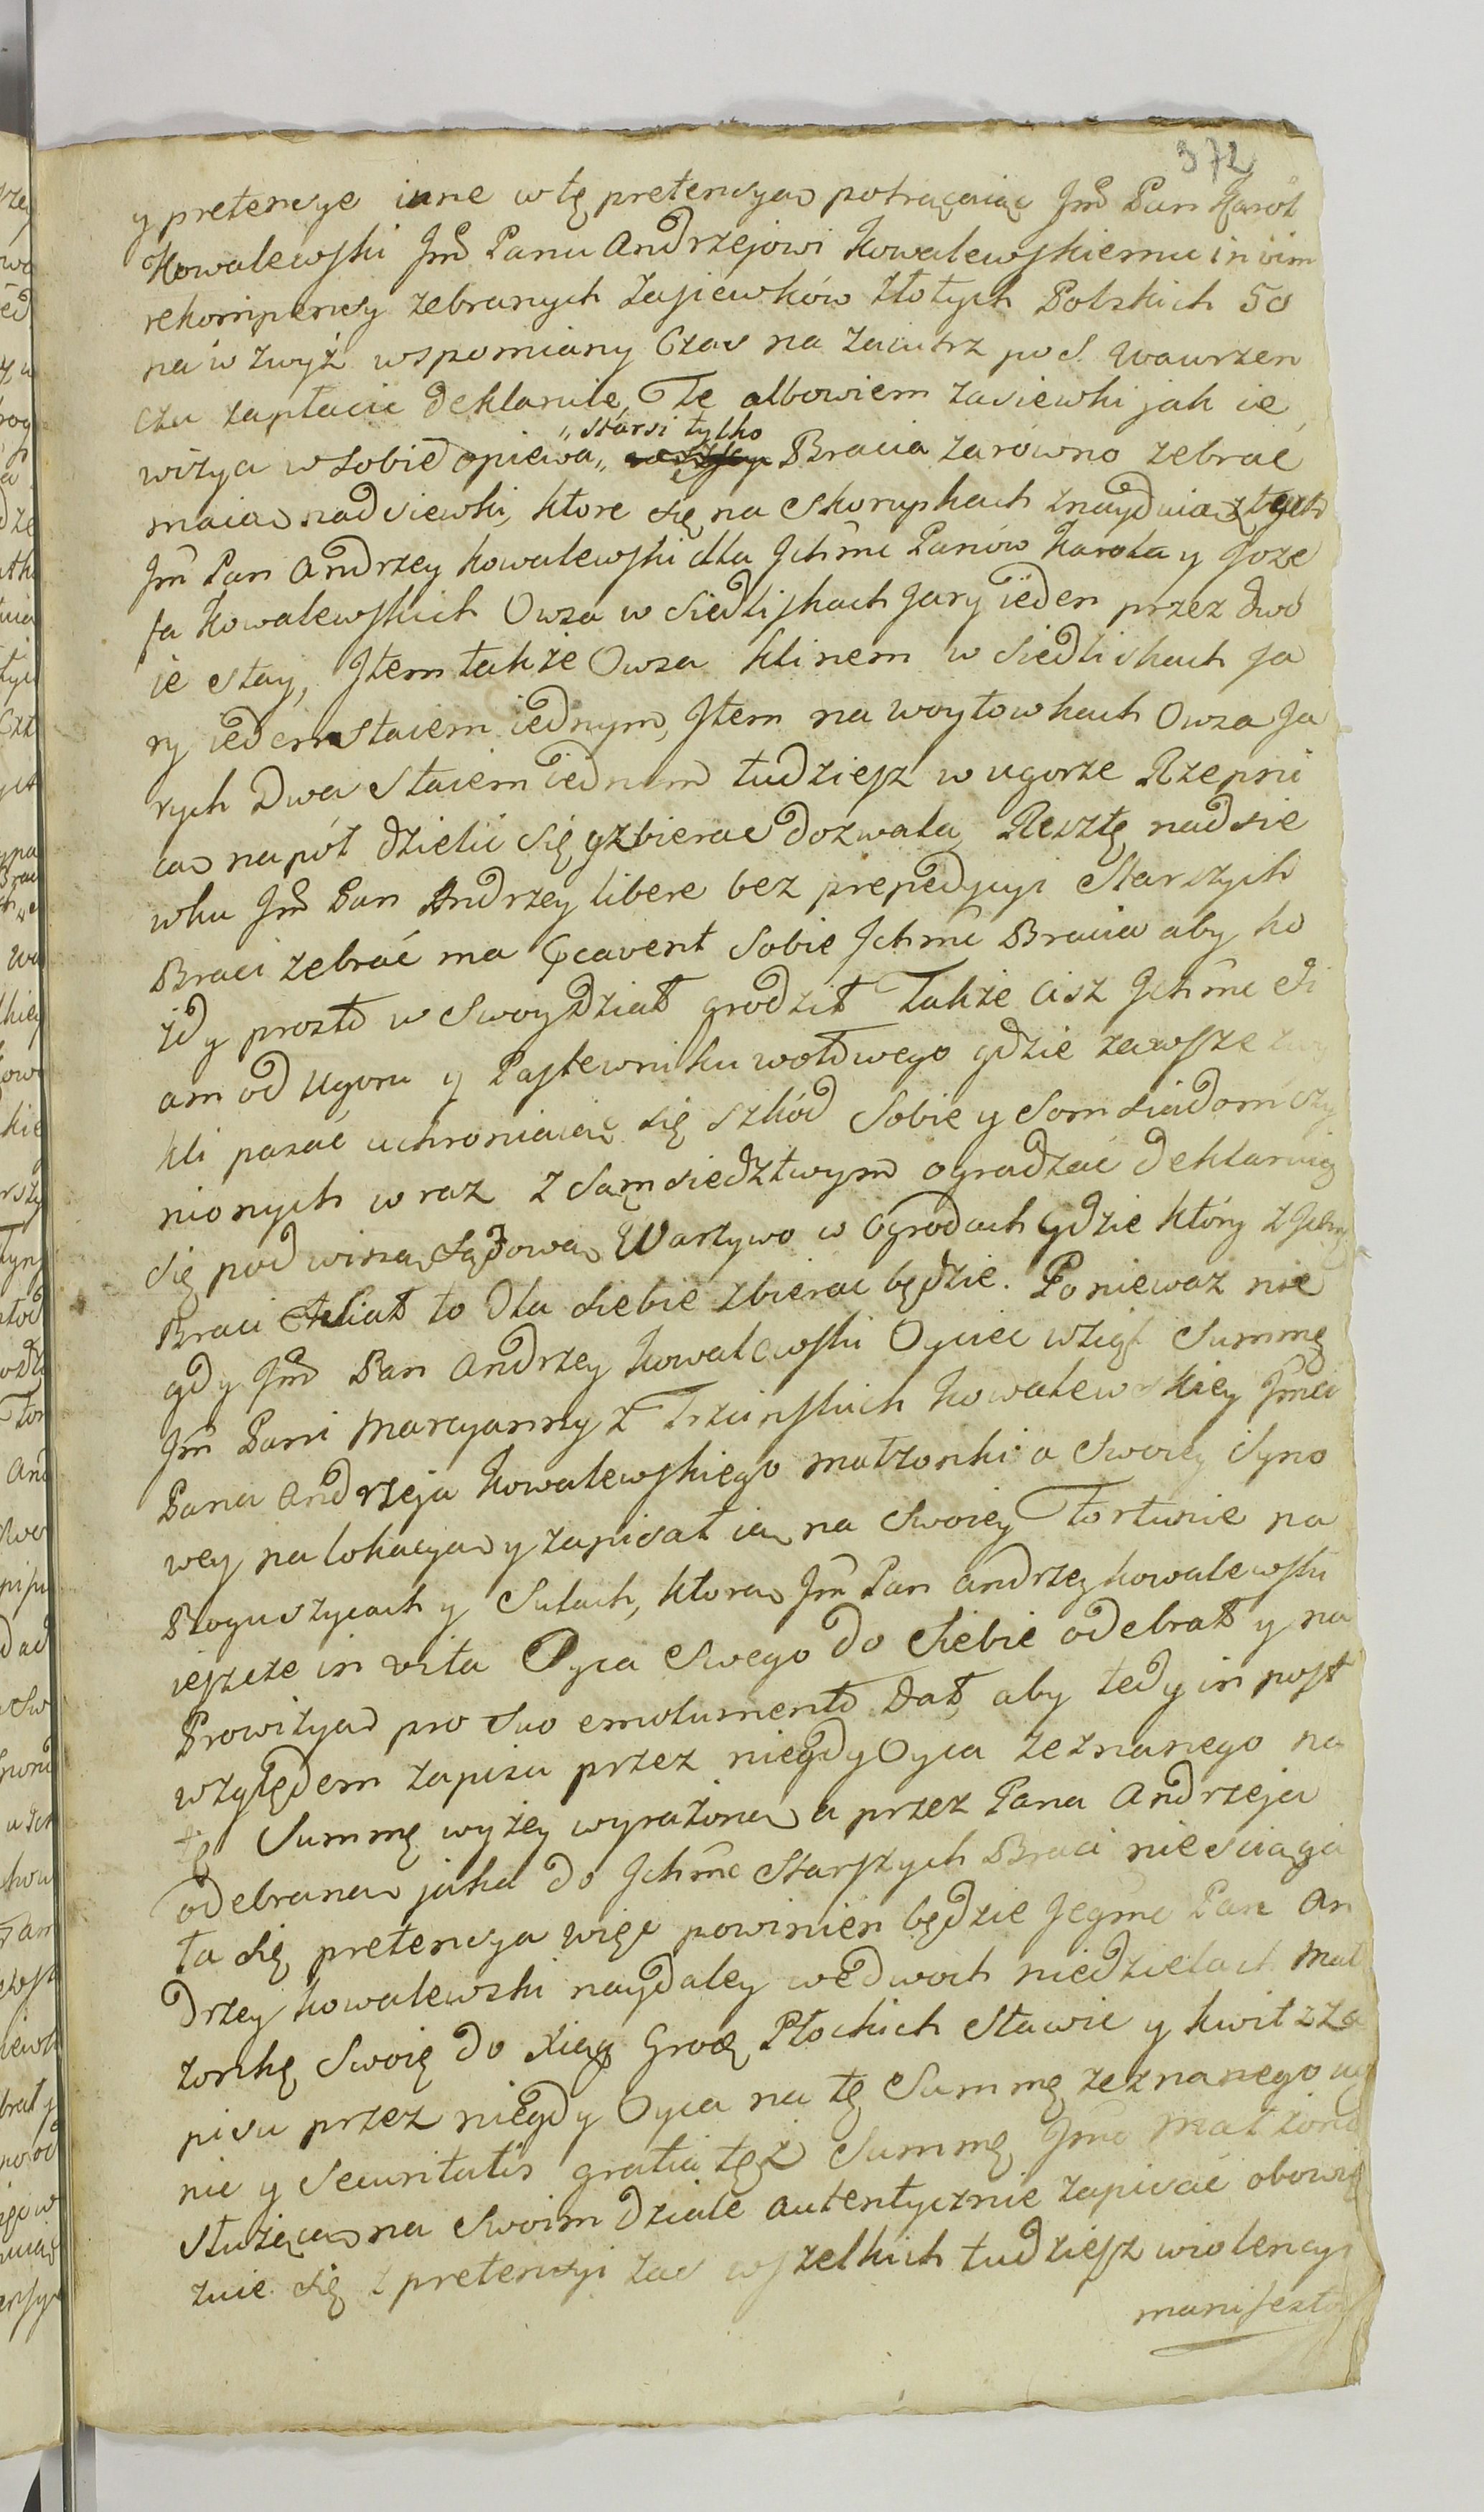 372
y pretensye inne w tę pretensyą potrącaiąc Jmć Pan Karól
Kowalewski Jmć Panu Andrzejowi Kowalewskiemu in vim
rekompensy zebranych Zasiewków Złotych Polskich 50
na w zwyż wspomiany Czas na Zaiutrz po S. Wawrzen
czu zapłacić deklaruie, Te albowiem zasiewki jak ie
starsi tylko
wizya w sobie opiewa Bracia zarówno zebrać
maią nadsiewki, ktore się na Skorupkach znayduią z tych
Jmć Pan Andrzey Kowalewski dla Ichmć Panów Karola y Joze
fa Kowalewskich Owsa w Siedliskach Jary ieden przez dwo
ie stay, Item także Owsa klinem w Siedliskach Ja
ry ieden staiem iednym, Item na woytowkach Owsa Ja
rych Dwa Staiem iednem tudziesz w ugorze Rzepni
cą napół dzielić się y zbierać dozwala, Resztę nadsie
wku Jmć Pan Andrzey libere bez prepedycyi Starszych
Braci zebrać ma Cavent sobie Ichmć Bracia aby ka
żdy prosto w Swoy Dział grodził Także cisz Ichmć
am od Ugoru y Pastewniku wołowego gdzie zawsze zwy
kli pasać uchroniaiąc się szkód Sobie y Somsiadom czy
nionych w raz z Sąmsiedztwym ogradzać deklaruią
się pod winą Sądową Warzywo w Ogrodach gdzie który z Ichmć
Braci Siał to dla siebie zbierac będzie. Ponieważ nie
gdy Jmć Pan Andrzey Kowalewski Oyciec wziął Summę
Jmć Pani Maryanny z Trzcinskich Kowalewskiey Jmci
Pana Andrzeja Kowalewskiego małżonki a Swoiey Syno
wey na lokacyą y zapisał ią na Swoiey Fortunie na
Boguszycach y Sulach, ktorą Jmć Pan Andrzey Kowalewski
ieszcze in vita Oyca Swego do Siebie odebrał y na
Prowizyą pro Suo emolumento Dał, aby tedy in post
względem zapisu przez niegdy Oyca zeznanego na
tę Summę wyżey wyrażoną a przez Pana Andrzeja
odebraną jaka do Ichmć Starszych Braci nie sciąga
ła się pretensya więc powinien będzie Jegmć Pan An
drzey Kowalewski naydaley we dwoch niedzielach Mał
żonkę Swoię do Xiąg Grodz. Płockich Stawic y kwit z Za
pisu przez niegdy Oyca na tę Summę zeznanego
nie y Securitatis gratia tęż Summę Jmć Małżonce
służącą na Swoim dziale autentycznie zapisać obowią
zuie się z pretensyi zas wszelkich tudziesz wiolencyi
manifestow